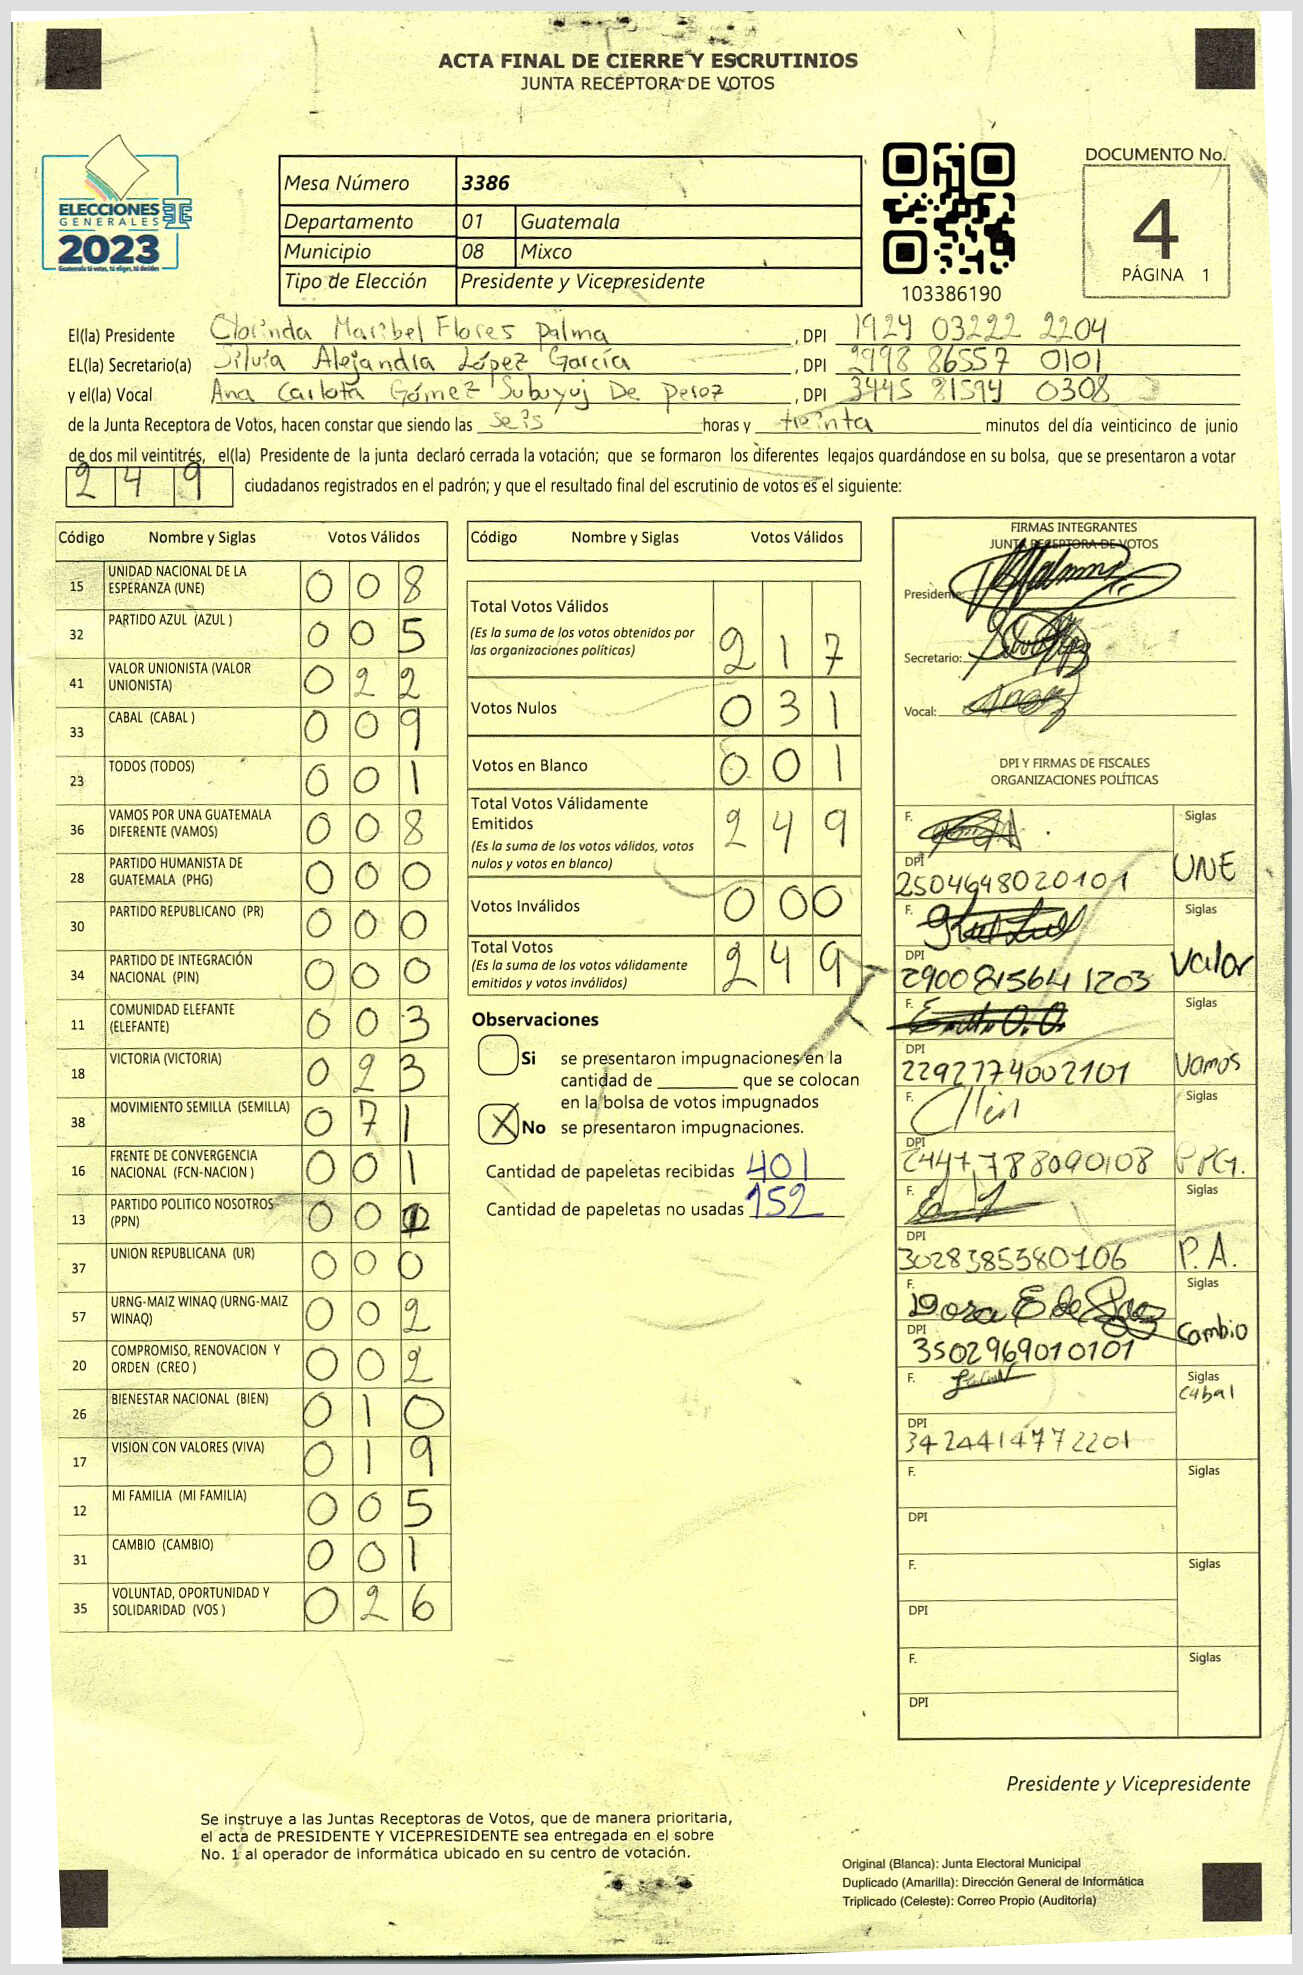 ACTA FINAL DE CIERRE Y ESCRUTINIOS
JUNTA RECEPTORA DE VOTOS
ELECCIONES
GENERALES
2023
Guatemala tú votas, tú eliges, tú decides
Mesa Número 3386
Departamento 01 Guatemala
Municipio 08 Mixco
Tipo de Elección Presidente y Vicepresidente
103386190
DOCUMENTO No.
4
PÁGINA 1
El(la) Presidente Clorinda Maribel Flores Palma, DPI 1924 03222 2204
EL(la) Secretario(a) Silvia Alejandra López García, DPI 2998 86557 0101
y el(la) Vocal Ana Carlota Gómez Subuyuj De Perez, DPI 3445 81594 0308
de la Junta Receptora de Votos, hacen constar que siendo las seis horas y treinta minutos del día veinticinco de junio
de dos mil veintitrés, el(la) Presidente de la junta declaró cerrada la votación; que se formaron los diferentes legajos guardándose en su bolsa, que se presentaron a votar
249 ciudadanos registrados en el padrón; y que el resultado final del escrutinio de votos es el siguiente:
Código Nombre y Siglas Votos Válidos
15 UNIDAD NACIONAL DE LA ESPERANZA (UNE) 008
32 PARTIDO AZUL (AZUL ) 005
41 VALOR UNIONISTA (VALOR UNIONISTA) 022
33 CABAL (CABAL ) 009
23 TODOS (TODOS) 001
36 VAMOS POR UNA GUATEMALA DIFERENTE (VAMOS) 008
28 PARTIDO HUMANISTA DE GUATEMALA (PHG) 000
30 PARTIDO REPUBLICANO (PR) 000
34 PARTIDO DE INTEGRACIÓN NACIONAL (PIN) 000
11 COMUNIDAD ELEFANTE (ELEFANTE) 003
18 VICTORIA (VICTORIA) 023
38 MOVIMIENTO SEMILLA (SEMILLA) 071
16 FRENTE DE CONVERGENCIA NACIONAL (FCN-NACION ) 001
13 PARTIDO POLITICO NOSOTROS (PPN) 001
37 UNION REPUBLICANA (UR) 000
57 URNG-MAIZ WINAQ (URNG-MAIZ WINAQ) 002
20 COMPROMISO, RENOVACION Y ORDEN (CREO ) 002
26 BIENESTAR NACIONAL (BIEN) 010
17 VISION CON VALORES (VIVA) 019
12 MI FAMILIA (MI FAMILIA) 005
31 CAMBIO (CAMBIO) 001
35 VOLUNTAD, OPORTUNIDAD Y SOLIDARIDAD (VOS ) 026
Código Nombre y Siglas Votos Válidos
Total Votos Válidos 217
(Es la suma de los votos obtenidos por
las organizaciones políticas)
Votos Nulos 031
Votos en Blanco 001
Total Votos Válidamente
Emitidos 249
(Es la suma de los votos válidos, votos
nulos y votos en blanco)
Votos Inválidos 000
Total Votos 249
(Es la suma de los votos válidamente
emitidos y votos inválidos)
Observaciones
Si se presentaron impugnaciones en la
cantidad de ________ que se colocan
en la bolsa de votos impugnados
X No se presentaron impugnaciones.
Cantidad de papeletas recibidas 401
Cantidad de papeletas no usadas 152
FIRMAS INTEGRANTES
JUNTA RECEPTORA DE VOTOS
Presidente:
Secretario:
Vocal:
DPI Y FIRMAS DE FISCALES
ORGANIZACIONES POLÍTICAS
F. Siglas
DPI UNE
2504648020101
F. Siglas
DPI Valor
2900815641203
F. Siglas
DPI Vamos
2292774002101
F. Siglas
DPI PPG.
2447788090108
F. Siglas
DPI P.A.
3028385580106
F. Dora E de Paz Siglas
DPI Cambio
3502969010101
F. Siglas
Cabal
DPI
3424414772201
F. Siglas
DPI
F. Siglas
DPI
F. Siglas
DPI
Presidente y Vicepresidente
Se instruye a las Juntas Receptoras de Votos, que de manera prioritaria,
el acta de PRESIDENTE Y VICEPRESIDENTE sea entregada en el sobre
No. 1 al operador de informática ubicado en su centro de votación.
Original (Blanca): Junta Electoral Municipal
Duplicado (Amarilla): Dirección General de Informática
Triplicado (Celeste): Correo Propio (Auditoría)